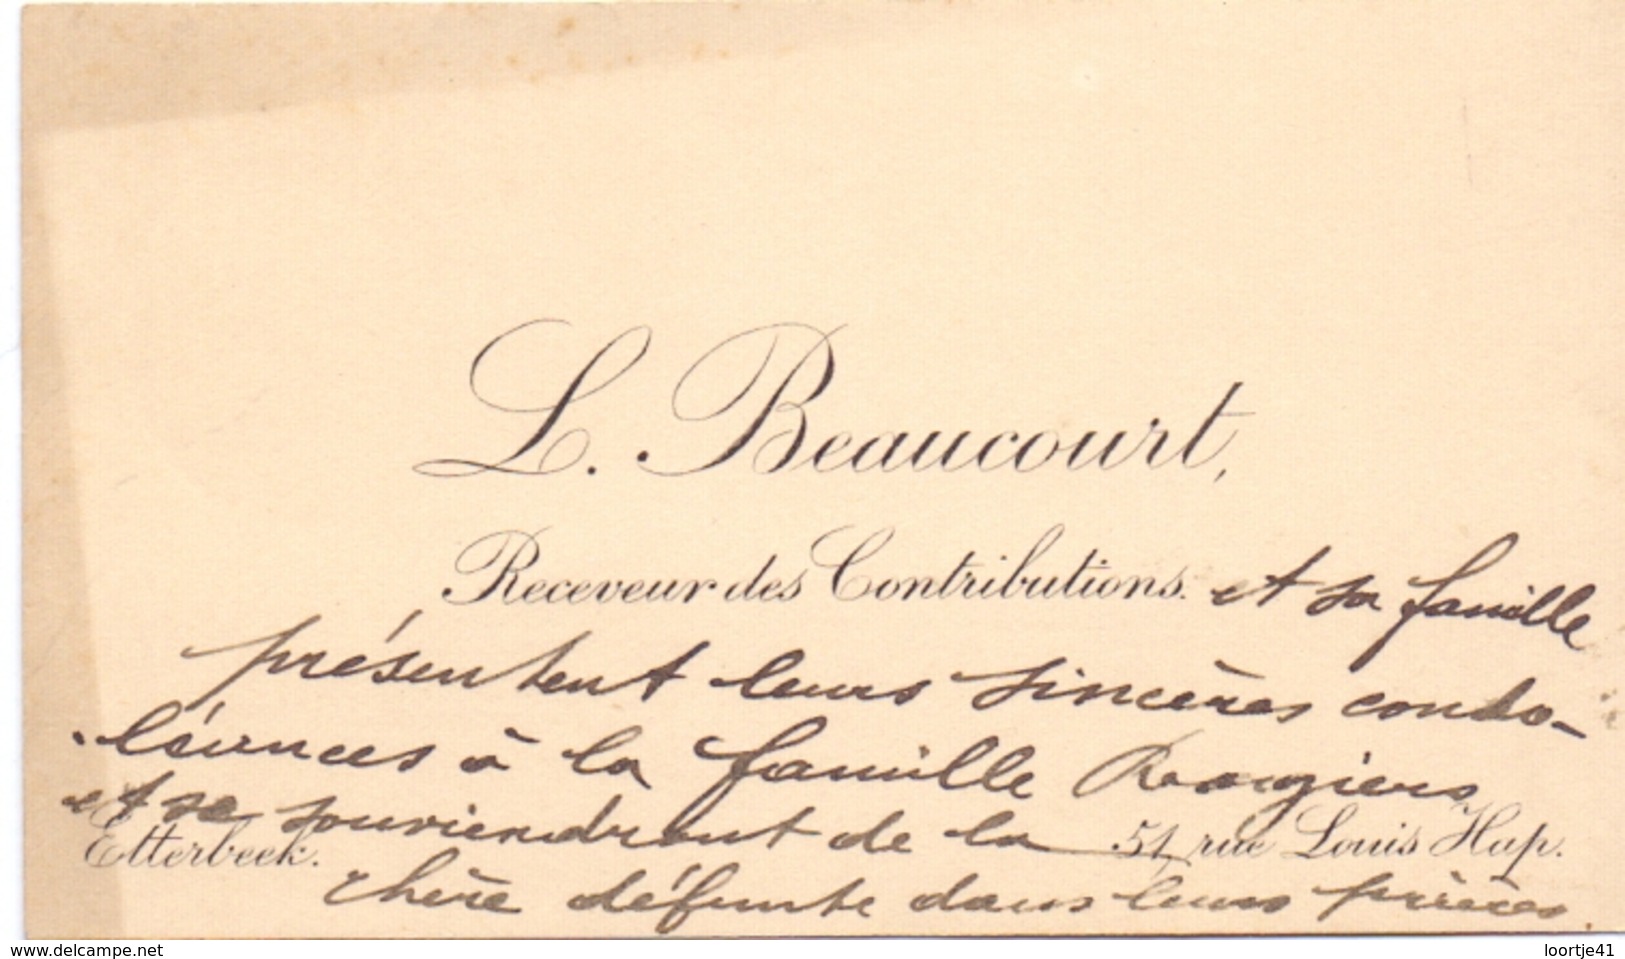 L. Beaucourt,
Receveur des Contributions. et sa famille
présentent leurs sincères condo-
léances à la famille Rougiers
et se souviendront de la
Etterbeek. 51, rue Louis Hap.
chère défunte dans leurs prières.
www.delcampe.net
loortje41